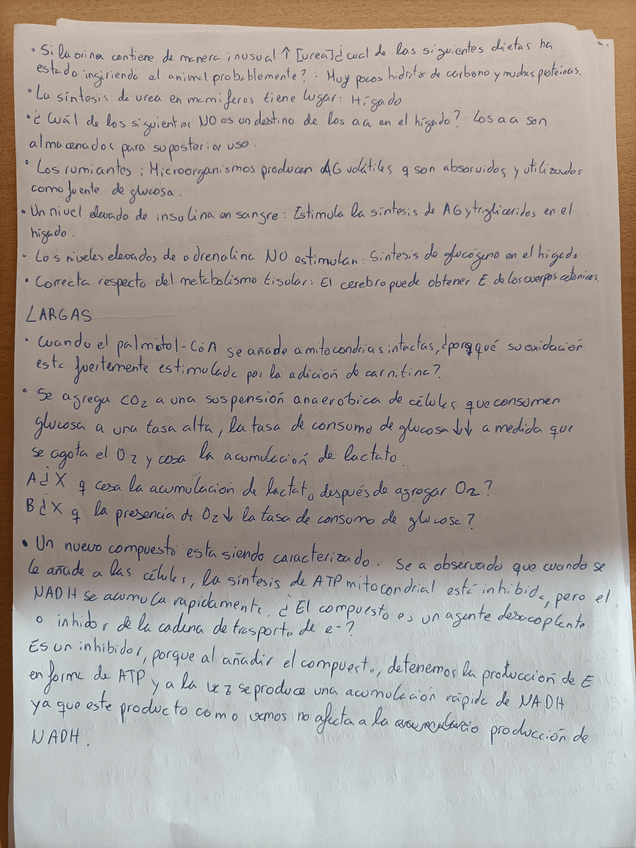 • Si la orina contiene de manera inusual ↑ [urea] ¿cual de las siguientes dietas ha
estado ingiriendo el animal probablemente?: Muy pocos hidratos de carbono y muchas proteinas.
• La síntesis de urea en mamiferos tiene lugar: Hígado
• ¿Cuál de los siguientes NO es un destino de los aa en el hígado?: Los aa son
almacenados para su posterior uso.
• Los rumiantes: Microorganismos producen AG volátiles q son absorvidos y utilizados
como fuente de glucosa.
• Un nivel elevado de insulina en sangre: Estimula la síntesis de AG y trigliceridos en el
hígado.
• Los niveles elevados de adrenalina NO estimulan: Sintesis de glucógeno en el hígado
• Correcta respecto del metabolismo tisular: El cerebro puede obtener E de los cuerpos cetonicos.
LARGAS
• Cuando el palmitol-CoA se añade a mitocondrias intactas, ¿por qué su oxidación
esta fuertemente estimulada por la adición de carnitina?
• Se agrega CO2 a una suspensión anaerobica de células que consumen
glucosa a una tasa alta, la tasa de consumo de glucosa ↓↓ a medida que
se agota el O2 y cesa la acumulación de lactato.
A ¿X q cesa la acumulación de lactato después de agregar O2?
B ¿X q la presencia de O2 ↓ la tasa de consumo de glucosa?
• Un nuevo compuesto esta siendo caracterizado. Se a observado que cuando se
le añade a las células, la síntesis de ATP mitocondrial está inhibida, pero el
NADH se acumula rapidamente. ¿El compuesto es un agente desacoplante
o inhidor de la cadena de trasporte de e-?
Es un inhibidor, porque al añadir el compuesto, detenemos la produccion de E
en forma de ATP y a la vez se produce una acumulación rápida de NADH
ya que este producto como vemos no afecta a la producción de
NADH.